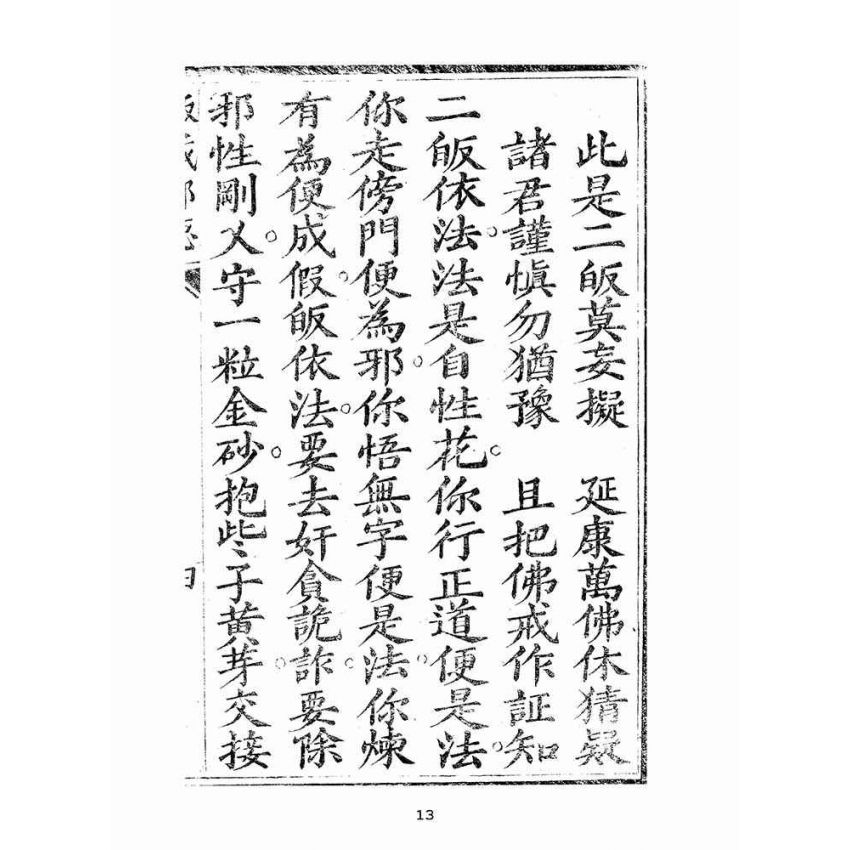 此是二皈莫妄擬　延康萬佛休猜疑
諸君謹慎勿猶豫　且把佛戒作証知
二皈依法。法是自性花。你行正道便是法。
你走傍門便為邪。你悟無字便是法。你煉
有為便成假。皈依法。要去奸貪詭詐。要除
邪性剛乂。守一粒金砂。抱些々子黄芽。交接
13